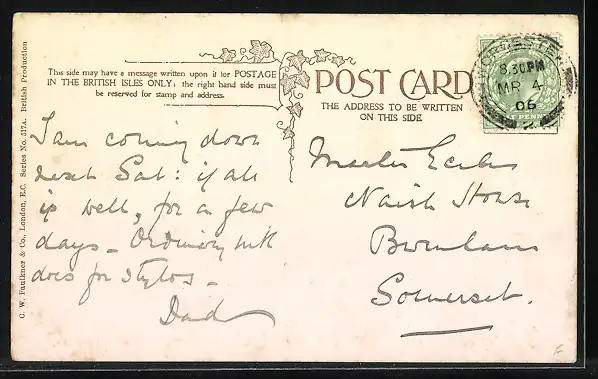 C. W. Faulkner & Co., London, E.C. Series No. 517A. British Production
This side may have a message written upon it for POSTAGE
IN THE BRITISH ISLES ONLY: the right hand side must
be reserved for stamp and address.
POST CARD
THE ADDRESS TO BE WRITTEN
ON THIS SIDE.
8.30PM
MR 4
06
I am coming down
next Sat: if all
is well, for a few
days - Ordinary ink
does for Stylos -
Dad
Master
Naish House
Burnham
Somerset.